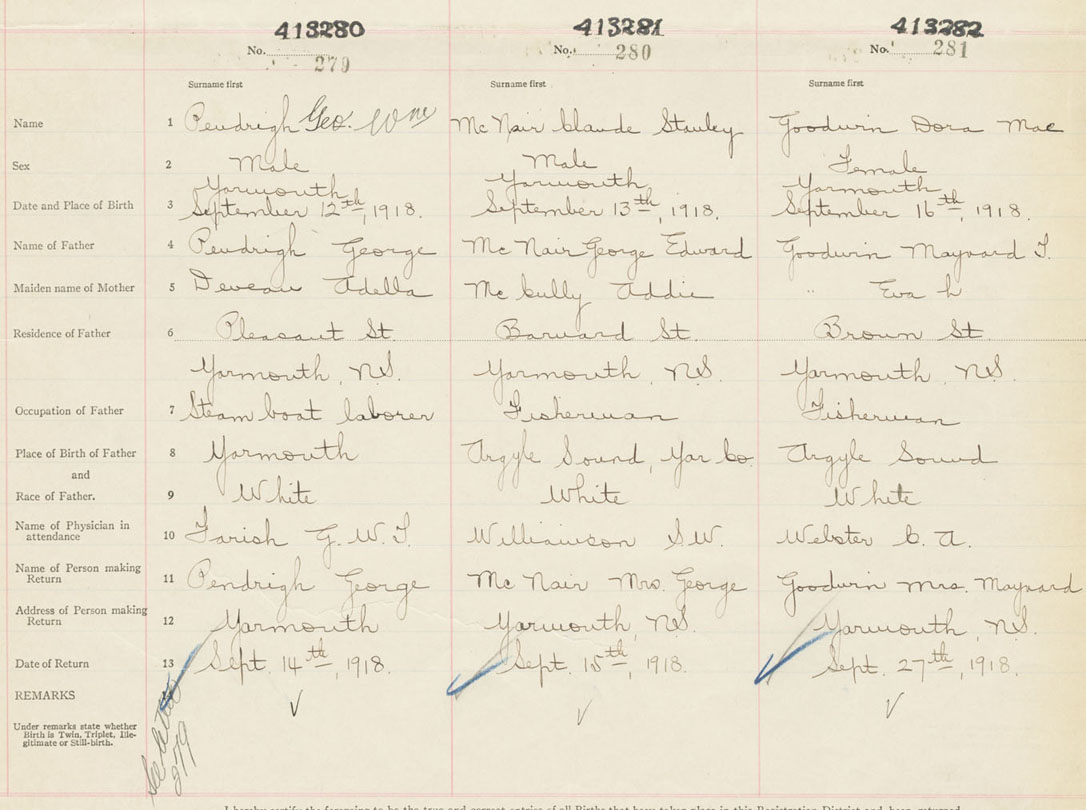 413280 413281 413282
No. 279 No. 280 No. 281
Surname first Surname first Surname first
Name 1 Pendrigh Geo. Wm McNair Claude Stanley Goodwin Dora Mae
Sex 2 Male Male Female
Yarmouth Yarmouth Yarmouth
Date and Place of Birth 3 September 12th, 1918. September 13th, 1918. September 16th, 1918.
Name of Father 4 Pendrigh George McNair George Edward Goodwin Maynard T.
Maiden name of Mother 5 Deveau Adella McCully Addie " Eva L
Residence of Father 6 Pleasant St. Barnard St. Brown St.
Yarmouth, N.S. Yarmouth, N.S. Yarmouth, N.S.
Occupation of Father 7 Steam boat laborer Fisherman Fisherman
Place of Birth of Father 8 Yarmouth Argyle Sound, Yar Co. Argyle Sound
and
Race of Father. 9 White White White
Name of Physician in attendance 10 Farish G. W. T. Williamson S.W. Webster C. A.
Name of Person making Return 11 Pendrigh George McNair Mrs. George Goodwin Mrs. Maynard
Address of Person making Return 12 Yarmouth Yarmouth, N.S. Yarmouth, N.S.
Date of Return 13 Sept. 14th, 1918. Sept. 15th, 1918. Sept. 27th, 1918.
REMARKS
Under remarks state whether
Birth is Twin, Triplet, Ille-
gitimate or Still-birth.
See letter
279
I hereby certify the foregoing to be the true and correct entries of all Births that have taken place in this Registration District and been returned